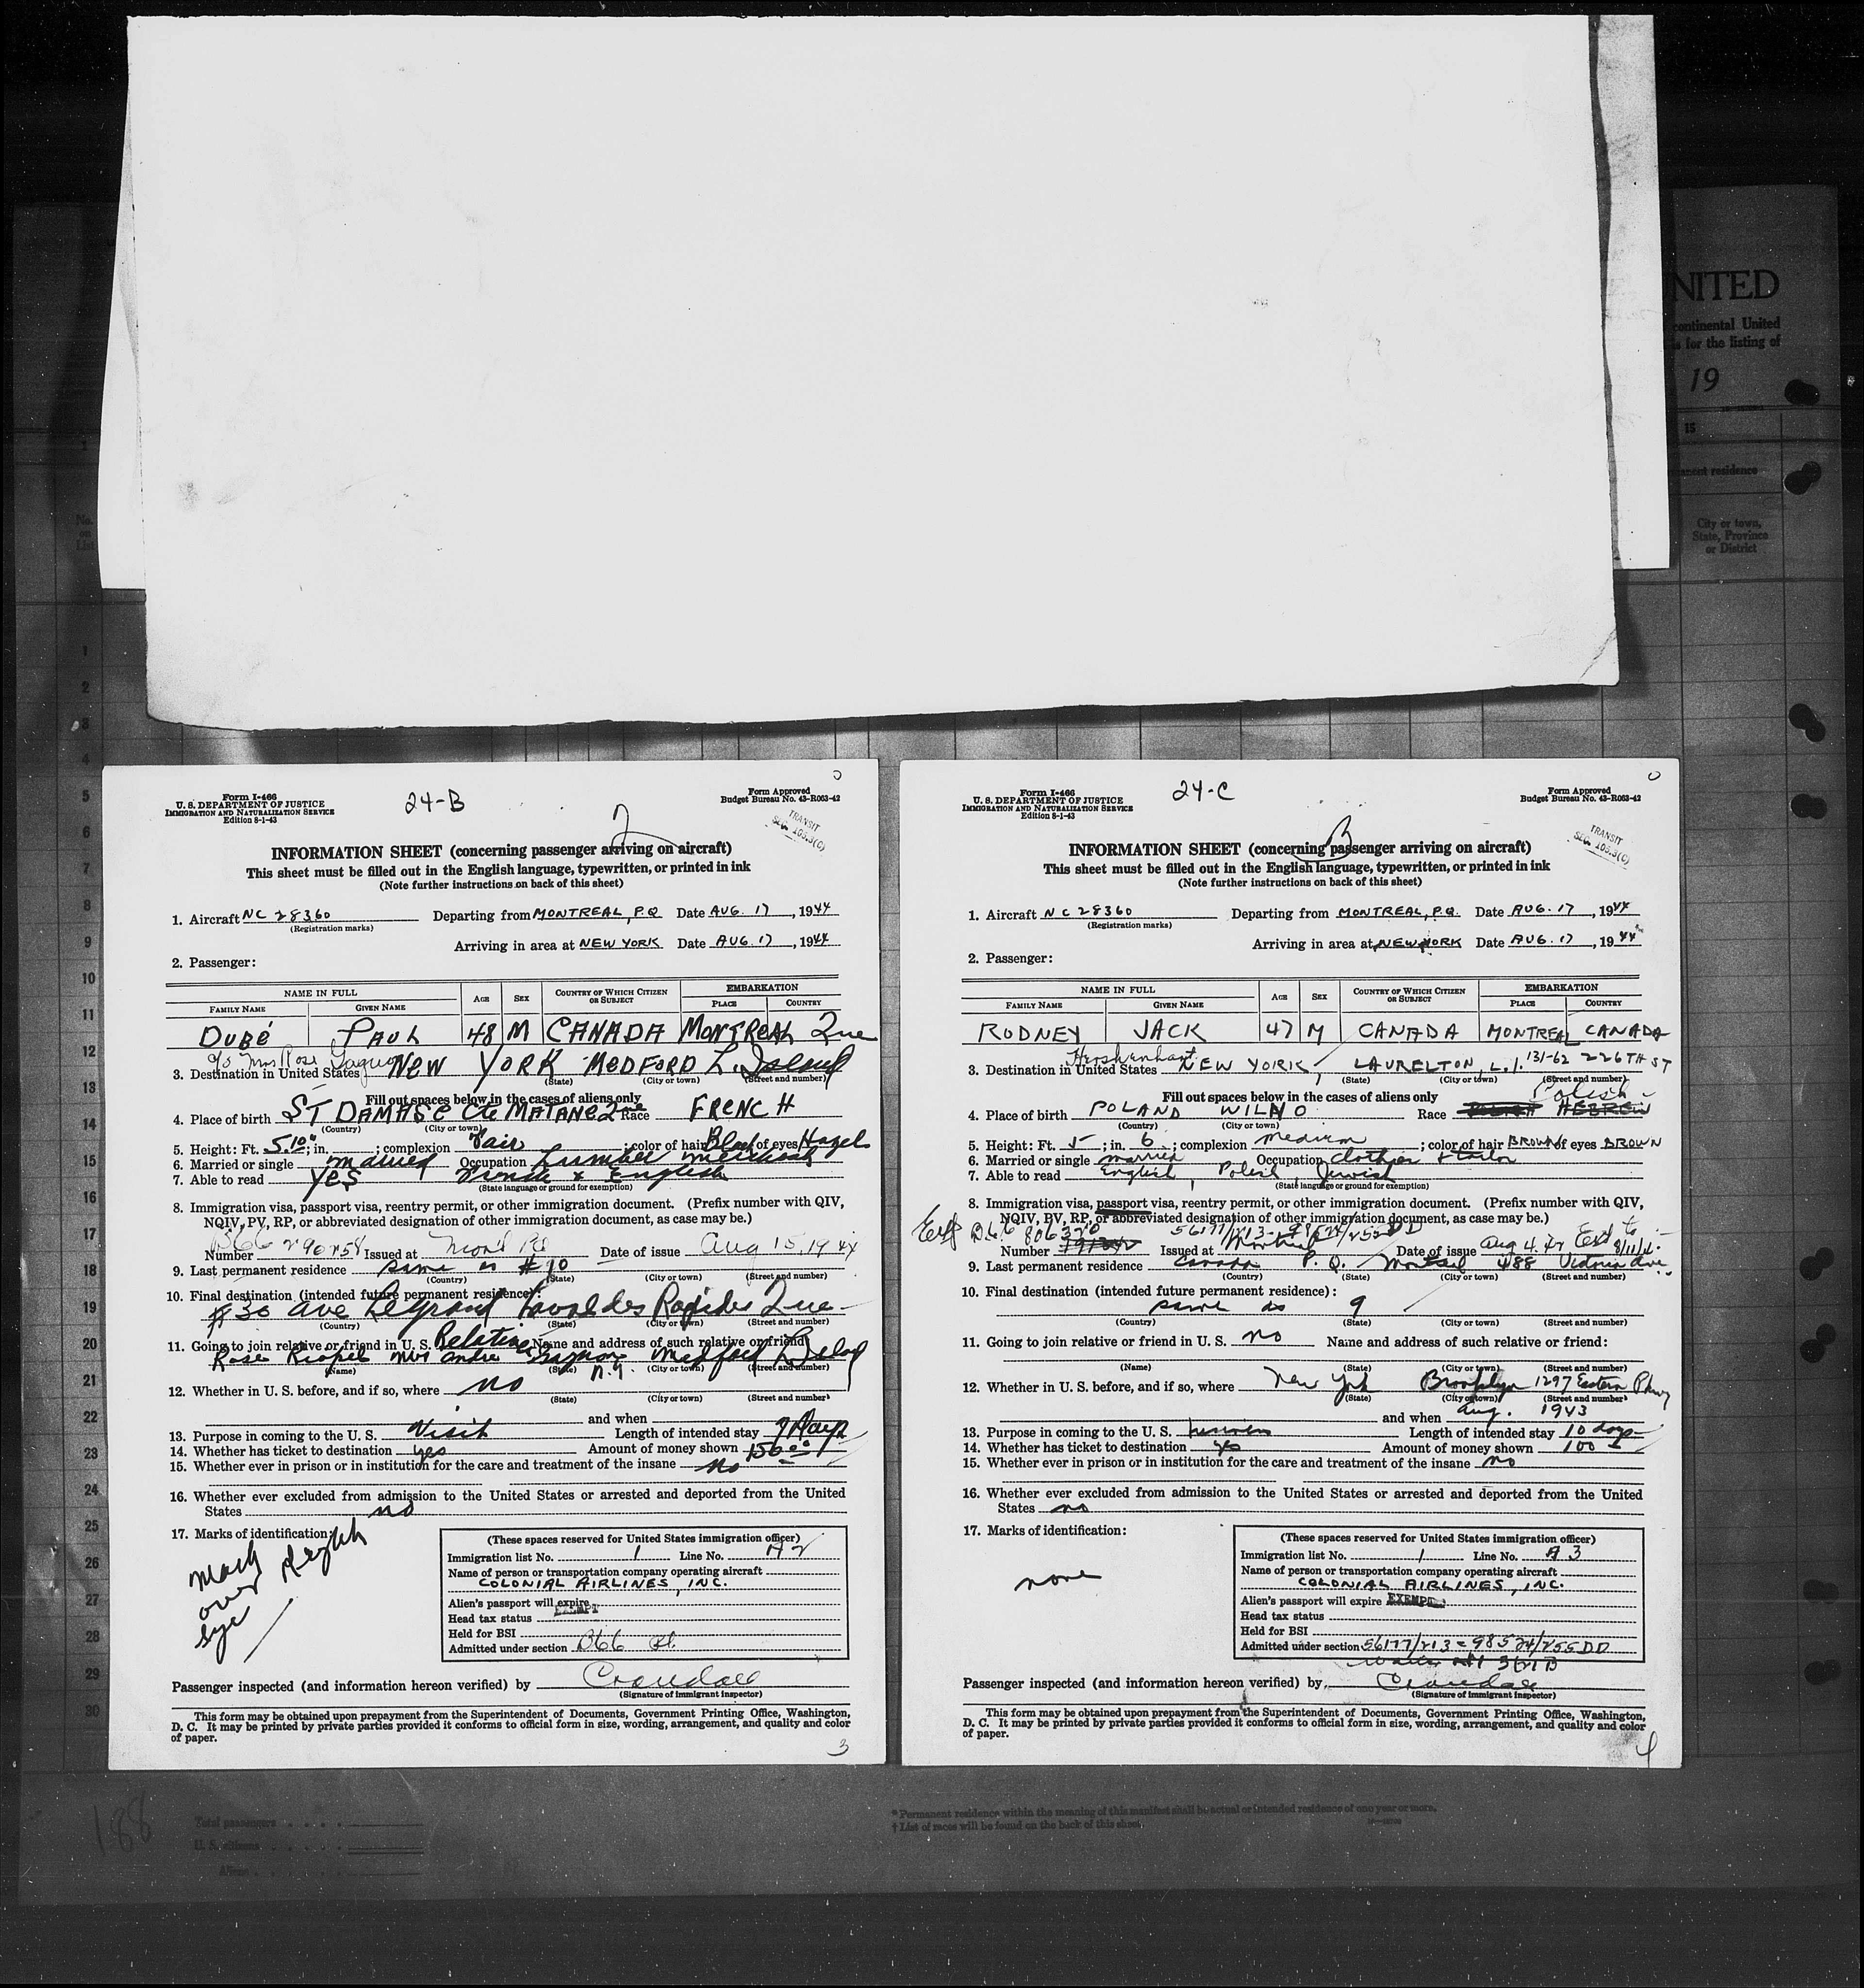 NITED
continental United
s for the listing of
19
15
anent residence
No.
on
List
City or town,
State, Province
or District
Form I-466
U. S. DEPARTMENT OF JUSTICE
IMMIGRATION AND NATURALIZATION SERVICE
Edition 8-1-43
24-B
2
Form Approved
Budget Bureau No. 43-R063-42
TRANSIT
SEC. 103.3(C)
INFORMATION SHEET (concerning passenger arriving on aircraft)
This sheet must be filled out in the English language, typewritten, or printed in ink
(Note further instructions on back of this sheet)
1. Aircraft NC 28360 Departing from MONTREAL, P.Q. Date AUG. 17, 1944
(Registration marks)
Arriving in area at NEW YORK Date AUG. 17, 1944
2. Passenger:
NAME IN FULL AGE SEX COUNTRY OF WHICH CITIZEN OR SUBJECT EMBARKATION
FAMILY NAME GIVEN NAME PLACE COUNTRY
DUBÉ PAUL 48 M CANADA MONTREAL Que
c/o Mrs Rose
3. Destination in United States NEW YORK MEDFORD L. Island
(State) (City or town) (Street and number)
Fill out spaces below in the cases of aliens only
4. Place of birth ST DAMASE Cte MATANE Que Race FRENCH
(Country) (City or town)
5. Height: Ft. 5.10" ; in. ; complexion Fair ; color of hair Black of eyes Hazels
6. Married or single married Occupation Lumber merchant
7. Able to read yes French & English
(State language or ground for exemption)
8. Immigration visa, passport visa, reentry permit, or other immigration document. (Prefix number with QIV,
NQIV, PV, RP, or abbreviated designation of other immigration document, as case may be.)
Number B66 290258 Issued at Mont PQ Date of issue Aug 15, 1944
9. Last permanent residence same as #10
(Country) (State) (City or town) (Street and number)
10. Final destination (intended future permanent residence):
#30 ave Legrand Laval des Rapides Que
(Country) (State) (City or town) (Street and number)
11. Going to join relative or friend in U. S. Relative Name and address of such relative or friend:
Rose Riopel Mrs andre Gagnon N.Y. Medford L Island
(Name) (State) (City or town) (Street and number)
12. Whether in U. S. before, and if so, where no
(State) (City or town) (Street and number)
and when
13. Purpose in coming to the U. S. Visit Length of intended stay 9 days
14. Whether has ticket to destination yes Amount of money shown 150.00
15. Whether ever in prison or in institution for the care and treatment of the insane no
16. Whether ever excluded from admission to the United States or arrested and deported from the United
States no
17. Marks of identification:
Mark over Right eye
(These spaces reserved for United States immigration officer)
Immigration list No. 1 Line No. A2
Name of person or transportation company operating aircraft
COLONIAL AIRLINES, INC.
Alien's passport will expire
EXEMPT
Head tax status
Held for BSI
Admitted under section B66
Passenger inspected (and information hereon verified) by Crandall
(Signature of immigrant inspector)
This form may be obtained upon prepayment from the Superintendent of Documents, Government Printing Office, Washington,
D. C. It may be printed by private parties provided it conforms to official form in size, wording, arrangement, and quality and color
of paper.
3
Form I-466
U. S. DEPARTMENT OF JUSTICE
IMMIGRATION AND NATURALIZATION SERVICE
Edition 8-1-43
24-C
Form Approved
Budget Bureau No. 43-R063-42
TRANSIT
SEC. 103.3(C)
INFORMATION SHEET (concerning passenger arriving on aircraft)
This sheet must be filled out in the English language, typewritten, or printed in ink
(Note further instructions on back of this sheet)
1. Aircraft NC 28360 Departing from MONTREAL, P.Q. Date AUG. 17, 1944
(Registration marks)
Arriving in area at NEW YORK Date AUG. 17, 1944
2. Passenger:
NAME IN FULL AGE SEX COUNTRY OF WHICH CITIZEN OR SUBJECT EMBARKATION
FAMILY NAME GIVEN NAME PLACE COUNTRY
RODNEY JACK 47 M CANADA MONTREAL CANADA
3. Destination in United States NEW YORK, LAURELTON, L.I. 131-62 226TH ST
(State) (City or town) (Street and number)
Fill out spaces below in the cases of aliens only
Polish
4. Place of birth POLAND WILNO Race HEBREW
(Country) (City or town)
5. Height: Ft. 5 ; in. 6 ; complexion medium ; color of hair BROWN of eyes BROWN
6. Married or single married Occupation Clothier & tailor
7. Able to read English, Polish, Jewish
(State language or ground for exemption)
8. Immigration visa, passport visa, reentry permit, or other immigration document. (Prefix number with QIV,
NQIV, PV, RP, or abbreviated designation of other immigration document, as case may be.)
B66 806320 56177/213-98524/255DD
Number Issued at Montreal Date of issue Aug 4. 44 Ext to
9. Last permanent residence Canada P. Q. Montreal 4188 Victoria Ave.
(Country) (State) (City or town) (Street and number)
10. Final destination (intended future permanent residence):
same as 9
(Country) (State) (City or town) (Street and number)
11. Going to join relative or friend in U. S. no Name and address of such relative or friend:
(Name) (State) (City or town) (Street and number)
12. Whether in U. S. before, and if so, where New York Brooklyn 1297 Eastern Pkwy
(State) (City or town) (Street and number)
and when Aug. 1943
13. Purpose in coming to the U. S. business Length of intended stay 10 days
14. Whether has ticket to destination yes Amount of money shown 100
15. Whether ever in prison or in institution for the care and treatment of the insane no
16. Whether ever excluded from admission to the United States or arrested and deported from the United
States no
17. Marks of identification:
none
(These spaces reserved for United States immigration officer)
Immigration list No. 1 Line No. A3
Name of person or transportation company operating aircraft
COLONIAL AIRLINES, INC.
Alien's passport will expire EXEMPT
Head tax status
Held for BSI
Admitted under section 56177/213=98524/255DD
Passenger inspected (and information hereon verified) by Crandall
(Signature of immigrant inspector)
This form may be obtained upon prepayment from the Superintendent of Documents, Government Printing Office, Washington,
D. C. It may be printed by private parties provided it conforms to official form in size, wording, arrangement, and quality and color
of paper.
4
188
Total passengers
U. S. citizens
Aliens
* Permanent residence within the meaning of this manifest shall be actual or intended residence of one year or more.
† List of races will be found on the back of this sheet.